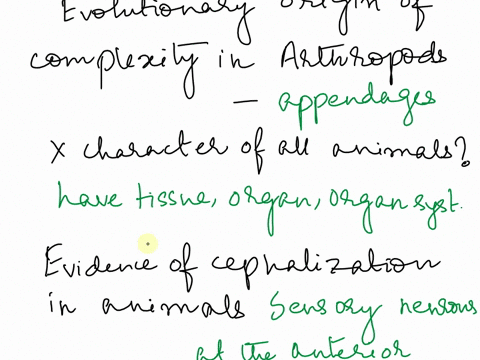 Evolutionary origin of
complexity in Arthropods
- appendages
X character of all animals?
have tissue, organ, organ syst.
Evidence of cephalization
in animals Sensory neurons
at the anterior